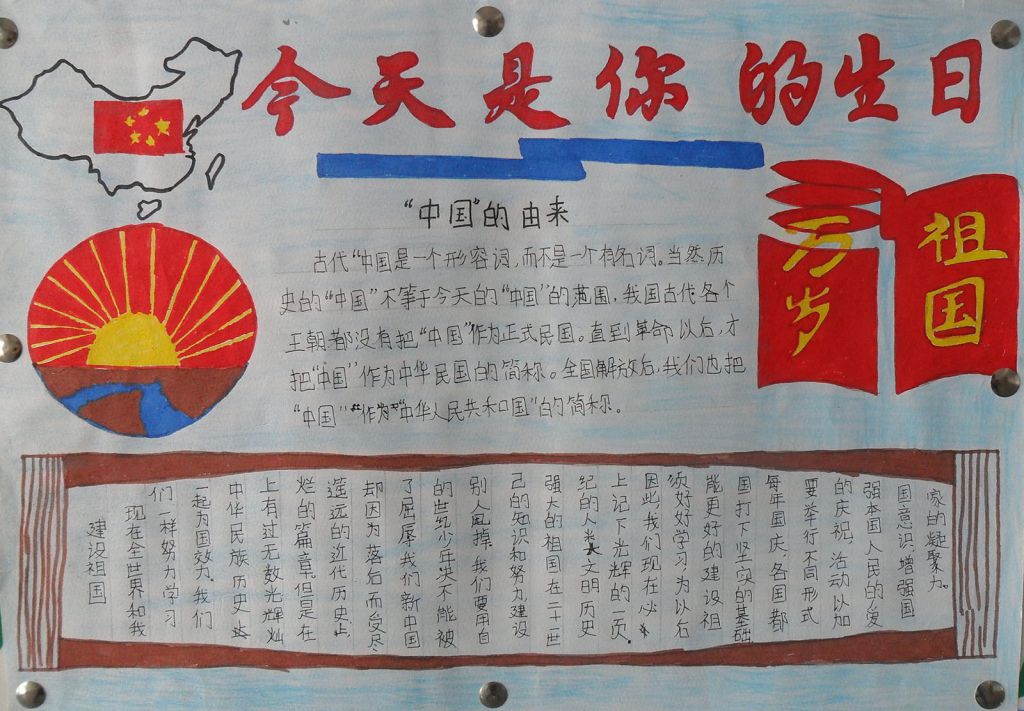 今天是你的生日
祖国
万岁
“中国”的由来
古代“中国是一个形容词,而不是一个有名词。当然历
史的“中国”不等于今天的“中国”的范围,我国古代各个
王朝都没有把“中国”作为正式民国。直到革命以后,才
把“中国”作为中华民国的简称。全国解放后,我们也把
“中国”作为“中华人民共和国”的简称。
建设祖国
现在全世界和我
们一样努力学习
一起为国效力。我们
中华民族历史上
上有过无数光辉灿
烂的篇章。但是在
遥远的近代历史上
却因为落后而受尽
了屈辱。我们新中国
的世纪少年英不能被
别人甩掉。我们要用自
己的知识和努力,建设
强大的祖国在二十一世
纪的人类文明历史
上记下光辉的一页。
因此,我们现在必
须好好学习为以后
能更好的建设祖
国打下坚实的基础
每年国庆,各国都
要举行不同形式
的庆祝,活动以加
强本国人民的爱
国意识,增强国
家的凝聚力。